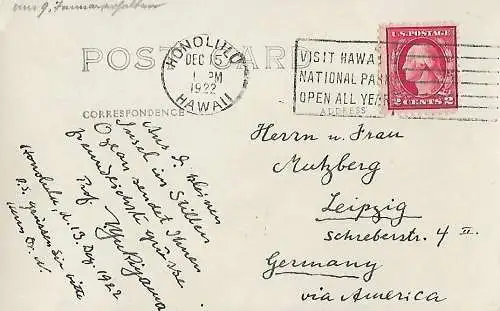 am 9. Januar erhalten
POST CARD
HONOLULU
DEC 15
1 PM
1922
HAWAII
VISIT HAWAII
NATIONAL PARK
OPEN ALL YEAR
U.S. POSTAGE
2 CENTS 2
CORRESPONDENCE
ADDRESS
Aus d. kleinen
Insel im Stillen
Ozean sendet Ihnen
freundlichste Grüsse
Prof.
Honolulu d. 13. Dez. 1922
P.S. grüssen Sie bitte
Dr.
Herrn u. Frau
Mutzberg
Leipzig
Schreberstr. 4 II.
Germany
via America